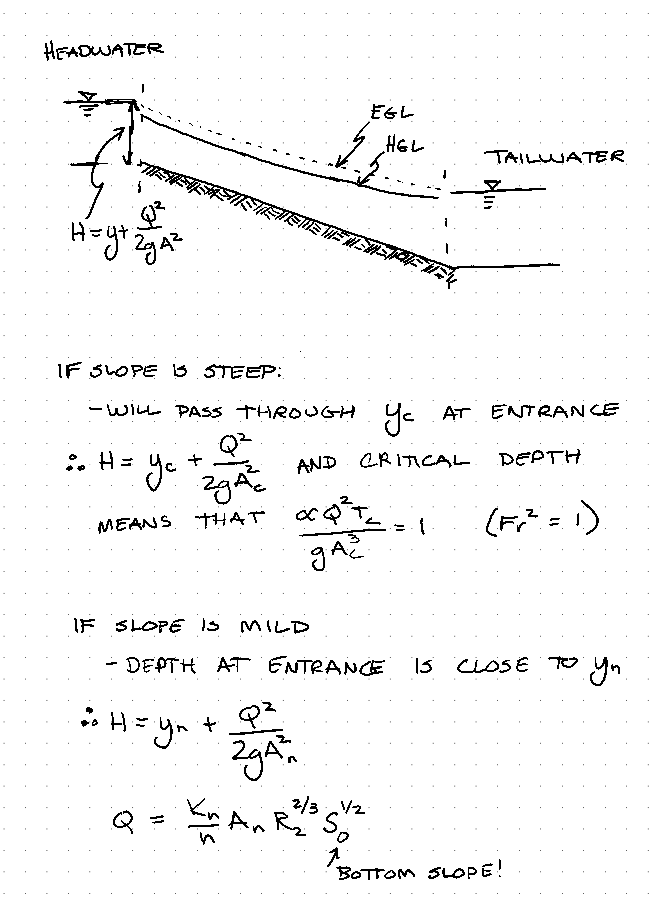 HEADWATER
EGL
HGL
TAILWATER
H = y + Q²/2gA²
IF SLOPE IS STEEP:
- WILL PASS THROUGH y_c AT ENTRANCE
∴ H = y_c + Q²/2gA_c² AND CRITICAL DEPTH
MEANS THAT αQ²T_c/gA_c³ = 1 (Fr² = 1)
IF SLOPE IS MILD
- DEPTH AT ENTRANCE IS CLOSE TO y_n
∴ H = y_n + Q²/2gA_n²
Q = K_n/n A_n R_2^2/3 S_0^1/2
BOTTOM SLOPE!